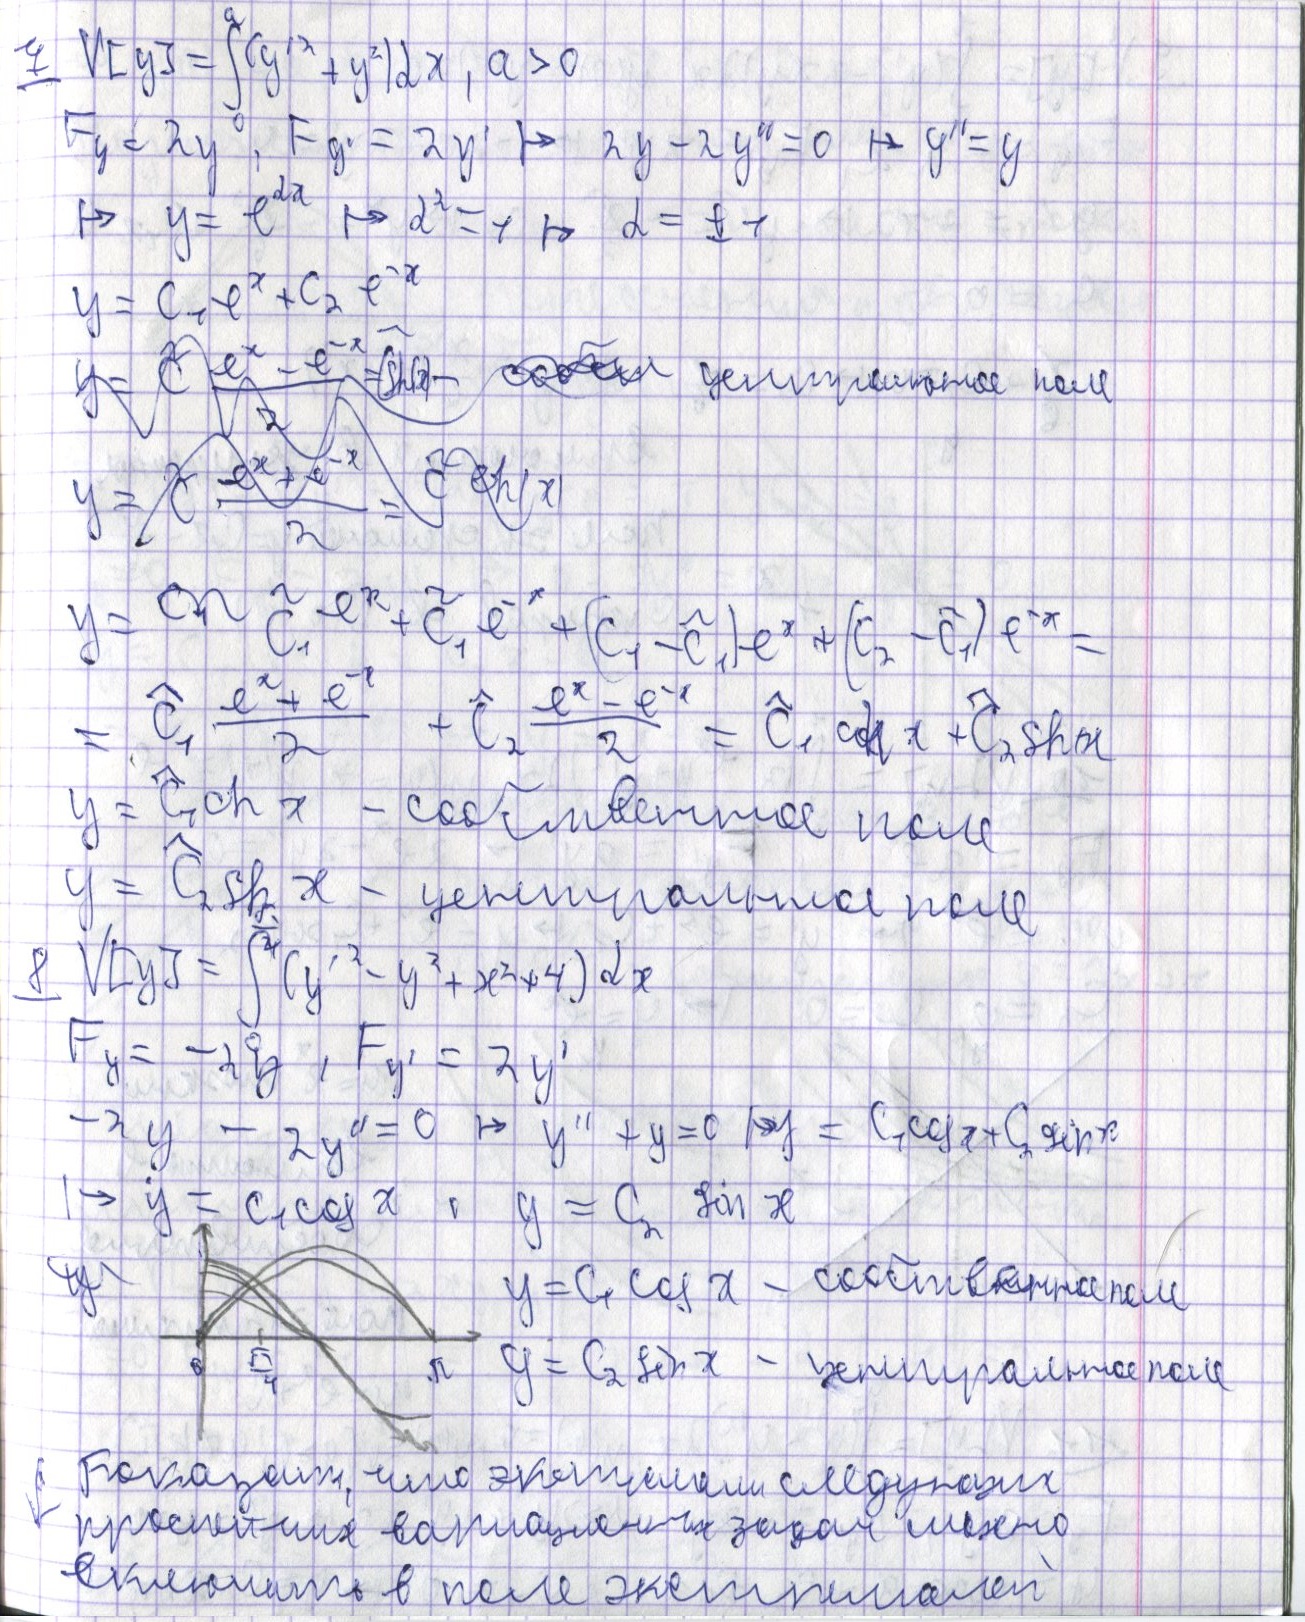 7 V[y] = ∫₀ᵃ (y'² + y²) dx, a > 0
F_y = 2y, F_y' = 2y' ↦ 2y - 2y'' = 0 ↦ y'' = y
↦ y = e^{αx} ↦ α² = 1 ↦ α = ±1
y = C₁e^x + C₂e^{-x}
y = C̃ (e^x - e^{-x})/2 = C̃ sh x - центральное поле
y = C̃ (e^x + e^{-x})/2 = C̃ ch x
y = C̃₁e^x + C̃₁e^{-x} + (C₁ - C̃₁)e^x + (C₂ - C̃₁)e^{-x} =
= Ĉ₁ (e^x + e^{-x})/2 + Ĉ₂ (e^x - e^{-x})/2 = Ĉ₁ ch x + Ĉ₂ sh x
y = Ĉ₁ ch x - собственное поле
y = Ĉ₂ sh x - центральное поле
8 V[y] = ∫₀^{π/4} (y'² - y² + x² + 4) dx
F_y = -2y, F_y' = 2y'
-2y - 2y'' = 0 ↦ y'' + y = 0 ↦ y = C₁cos x + C₂ sin x
↦ y = C₁ cos x, y = C₂ sin x
y = C₁ cos x - собственное поле
0 π/4 π y = C₂ sin x - центральное поле
Показать, что экстремали следующих
простейших вариационных задач можно
включить в поле экстремалей